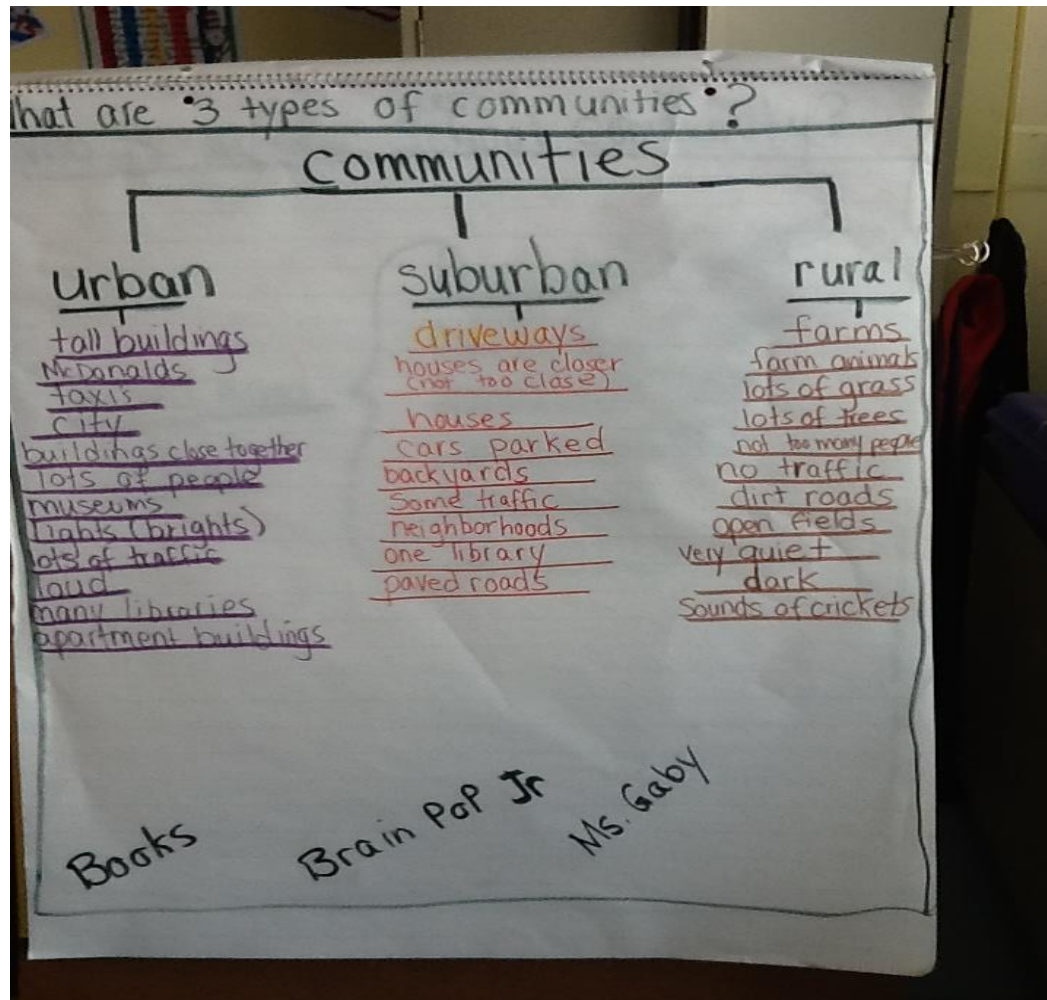 hat are 3 types of communities?
communities
urban
tall buildings
McDonalds
taxis
city
buildings close together
lots of people
museums
lights (brights)
lots of traffic
loud
many libraries
apartment buildings
suburban
driveways
houses are closer
(not too close)
houses
cars parked
backyards
Some traffic
neighborhoods
one library
paved roads
rural
farms
farm animals
lots of grass
lots of trees
not too many people
no traffic
dirt roads
open fields
very quiet
dark
Sounds of crickets
Books
Brain PoP Jr
Ms. Gaby